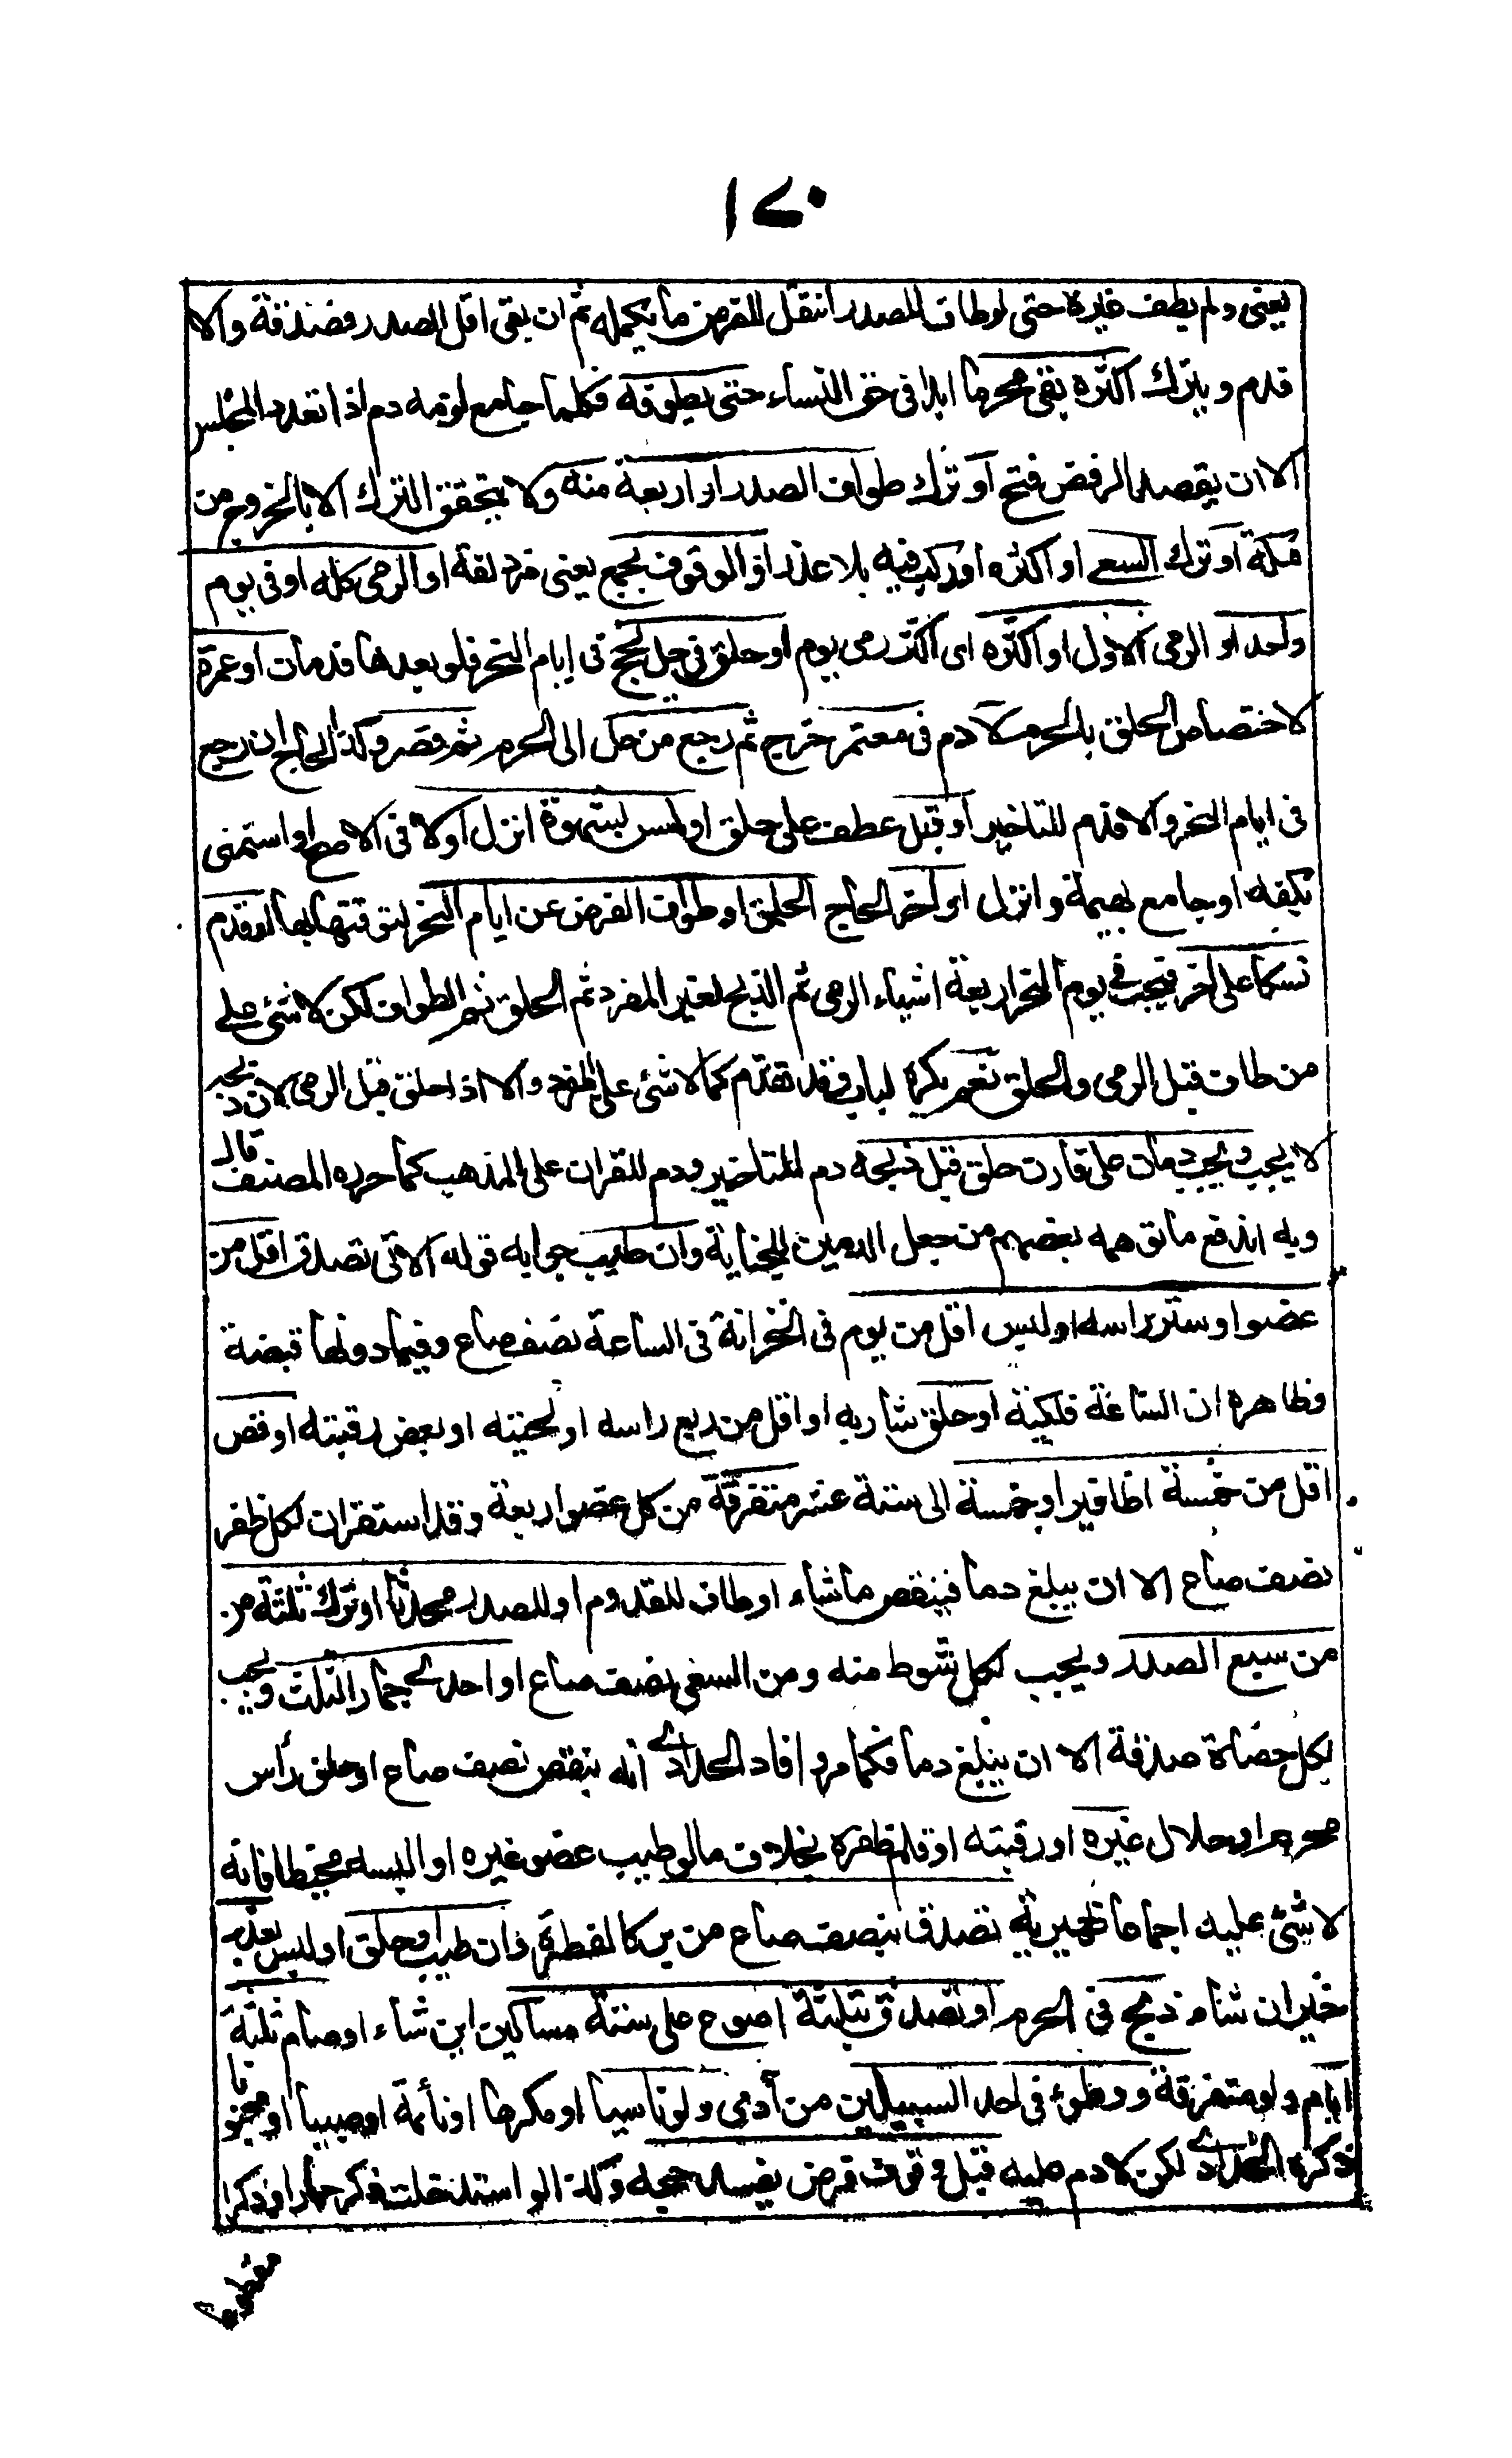 ١٧٠
يعنى ولم يطف غيره حتى لوطاف للصدر انتقل للفرض ما يكمله ثم ان بقى اقل الصدر فصدقة والا
فدم وبترك اكثره بقى محرما ابدا فى حق النساء حتى يطوفه فكلما جامع لزمه دم اذا تعدد المجلس
الا ان يقصد الرفض فتح او ترك طواف الصدر او اربعة منه ولا يتحقق الترك الا بالخروج من
مكة او ترك السعى او اكثره او ركب فيه بلا عذر او الوقوف بجمع يعنى مزدلفة او الرمى كله او فى يوم
واحد او الرمى الاول او اكثره اى اكثر رمى يوم او حلق فى حل بحج فى ايام النحر فلو بعدها فدمان او عمرة
لاختصاص الحلق بالحرم لا دم فى معتمر خرج ثم رجع من حل الى الحرم ثم قصر وكذا الحاج ان رجع
فى ايام النحر والا فدم للتاخير او قبل عطف على حلق او لمس بشهوة انزل اولا فى الاصح او استمنى
بكفه او جامع بهيمة وانزل او اخر الحاج الحلق او طواف الفرض عن ايام النحر لتوقتهما بها او قدم
نسكا على اخر فيجب فى يوم النحر اربعة اشياء الرمى ثم الذبح لغير المفرد ثم الحلق ثم الطواف لكن لا شئ على
من طاف قبل الرمى والحلق نعم يكره لباب وقد تقدم كما لا شئ على المفرد الا اذا حلق قبل الرمى لان ذبحه
لا يجب ويجب دمان على قارن حلق قبل ذبحه دم للتاخير ودم للقران على المذهب كما حرره المصنف قال
وبه اندفع ما توهمه بعضهم من جعل الدمين للجناية وان طيب جوابه قوله الآتى تصدق اقل من
عضو او ستر راسه او لبس اقل من يوم فى الخزانة فى الساعة نصف صاع وفيما دونها قبضة
فظاهره ان الساعة فلكية او حلق شاربه او اقل من ربع راسه او لحيته او بعض رقبته او قص
اقل من خمسة اظافير او خمسة الى ستة عشر متفرقة من كل عضو اربعة وقد استقر ان لكل ظفر
نصف صاع الا ان يبلغ دما فينقص ما شاء او طاف للقدوم او للصدر محدثا او ترك ثلثة من
من سبع الصدر ويجب لكل شوط منه ومن السعى نصف صاع او احدى جمار الثلث ويجب
لكل حصاة صدقة الا ان يبلغ دما فكما مر وافاد الحدادى انه ينقص نصف صاع او حلق رأس
محرم او حلال غيره او رقبته او قلم ظفره بخلاف ما لو طيب عضو غيره او البسه مخيطا فانه
لا شئ عليه اجماعا ظهيرية تصدق بنصف صاع من بر كالفطرة وان طيب او حلق او لبس بعذر
خير ان شاء ذبح فى الحرم او تصدق بثلثة اصوع على ستة مساكين اين شاء او صام ثلثة
ايام ولو متفرقة ووطئ فى احد السبيلين من آدمى ولو ناسيا او مكرها او نائمة او صبيا او مجنونا
ذكره الحدادى لكن لا دم عليه قبل وقوف فرض يفسد حجه وكذا لو استدخلت ذكر حمار او ذكرا
مقطوعا